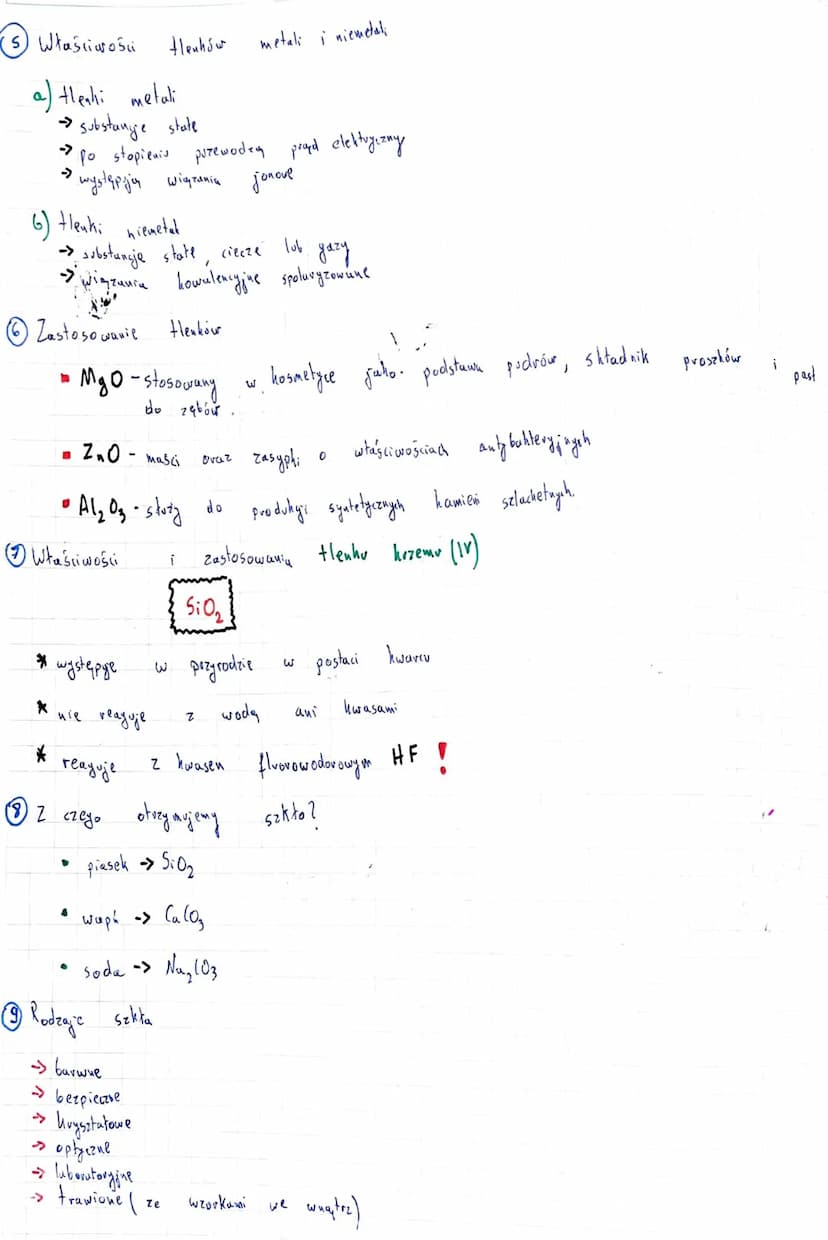 5 Właściwości tlenków metali i niemetali
a) tlenki metali
→ substancje stałe
→ po stopieniu przewodzą prąd elektryczny
→ występują wiązania jonowe
b) tlenki niemetali
→ substancje stałe, ciecze lub gazy
→ wiązania kowalencyjne spolaryzowane
6 Zastosowanie tlenków
MgO - stosowany w kosmetyce jako podstawa pudrów, składnik proszków i past
do zębów.
ZnO - maści oraz zasypki o właściwościach antybakteryjnych
Al₂O₃ - służy do produkcji syntetycznych kamieni szlachetnych.
7 Właściwości i zastosowania tlenku krzemu (IV)
SiO₂
* występuje w przyrodzie w postaci kwarcu
* nie reaguje z wodą ani kwasami
* reaguje z kwasem fluorowodorowym HF !
8 Z czego otrzymujemy szkło?
• piasek → SiO₂
• wapń → CaCO₃
• soda → Na₂CO₃
9 Rodzaje szkła
→ barwne
→ bezpieczne
→ kryształowe
→ optyczne
→ laboratoryjne
→ trawione (ze wzorkami we wnątrz)